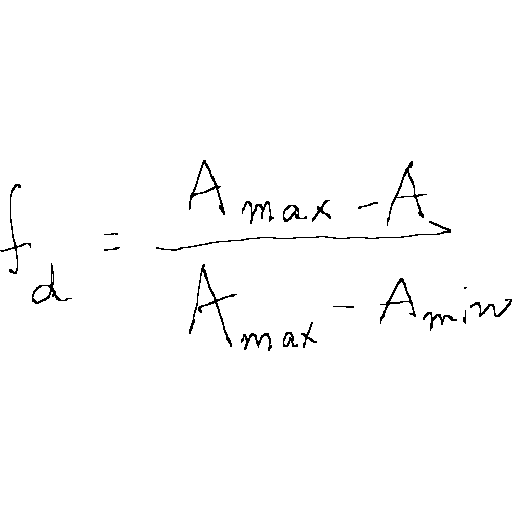 f_d = \frac{A_{max} - A_>}{A_{max} - A_{min}}